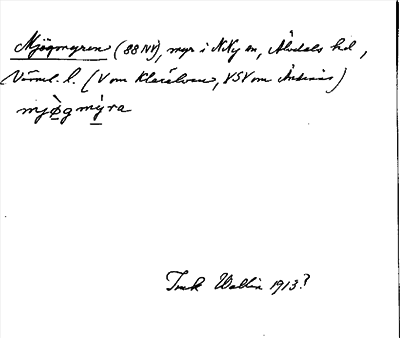 Mjögmyren (88NV), myr i N Ny sn, Älvdals hd,
Värml. l. (V om Klarälven, VSV om Ändenäs)
mjøg mỳra
Tack Wallin 1913?